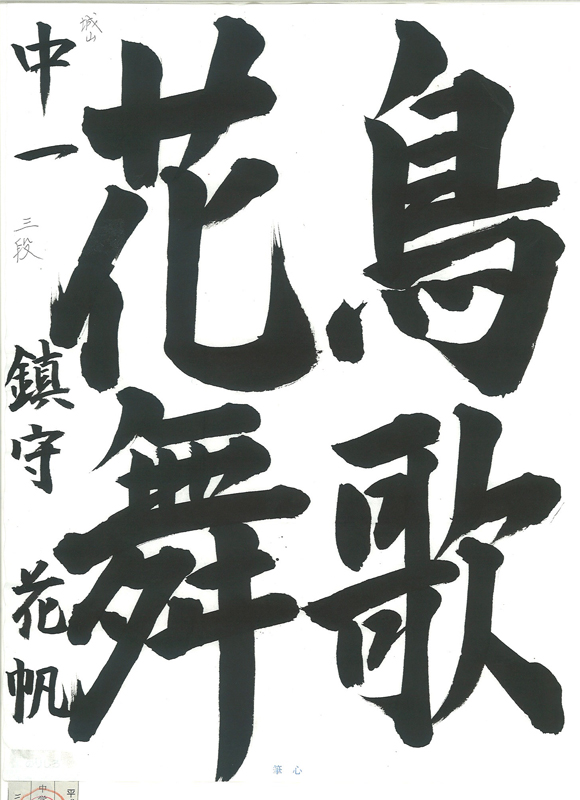 鳥歌
花舞
城山
中一 三段 鎮守 花帆
筆心